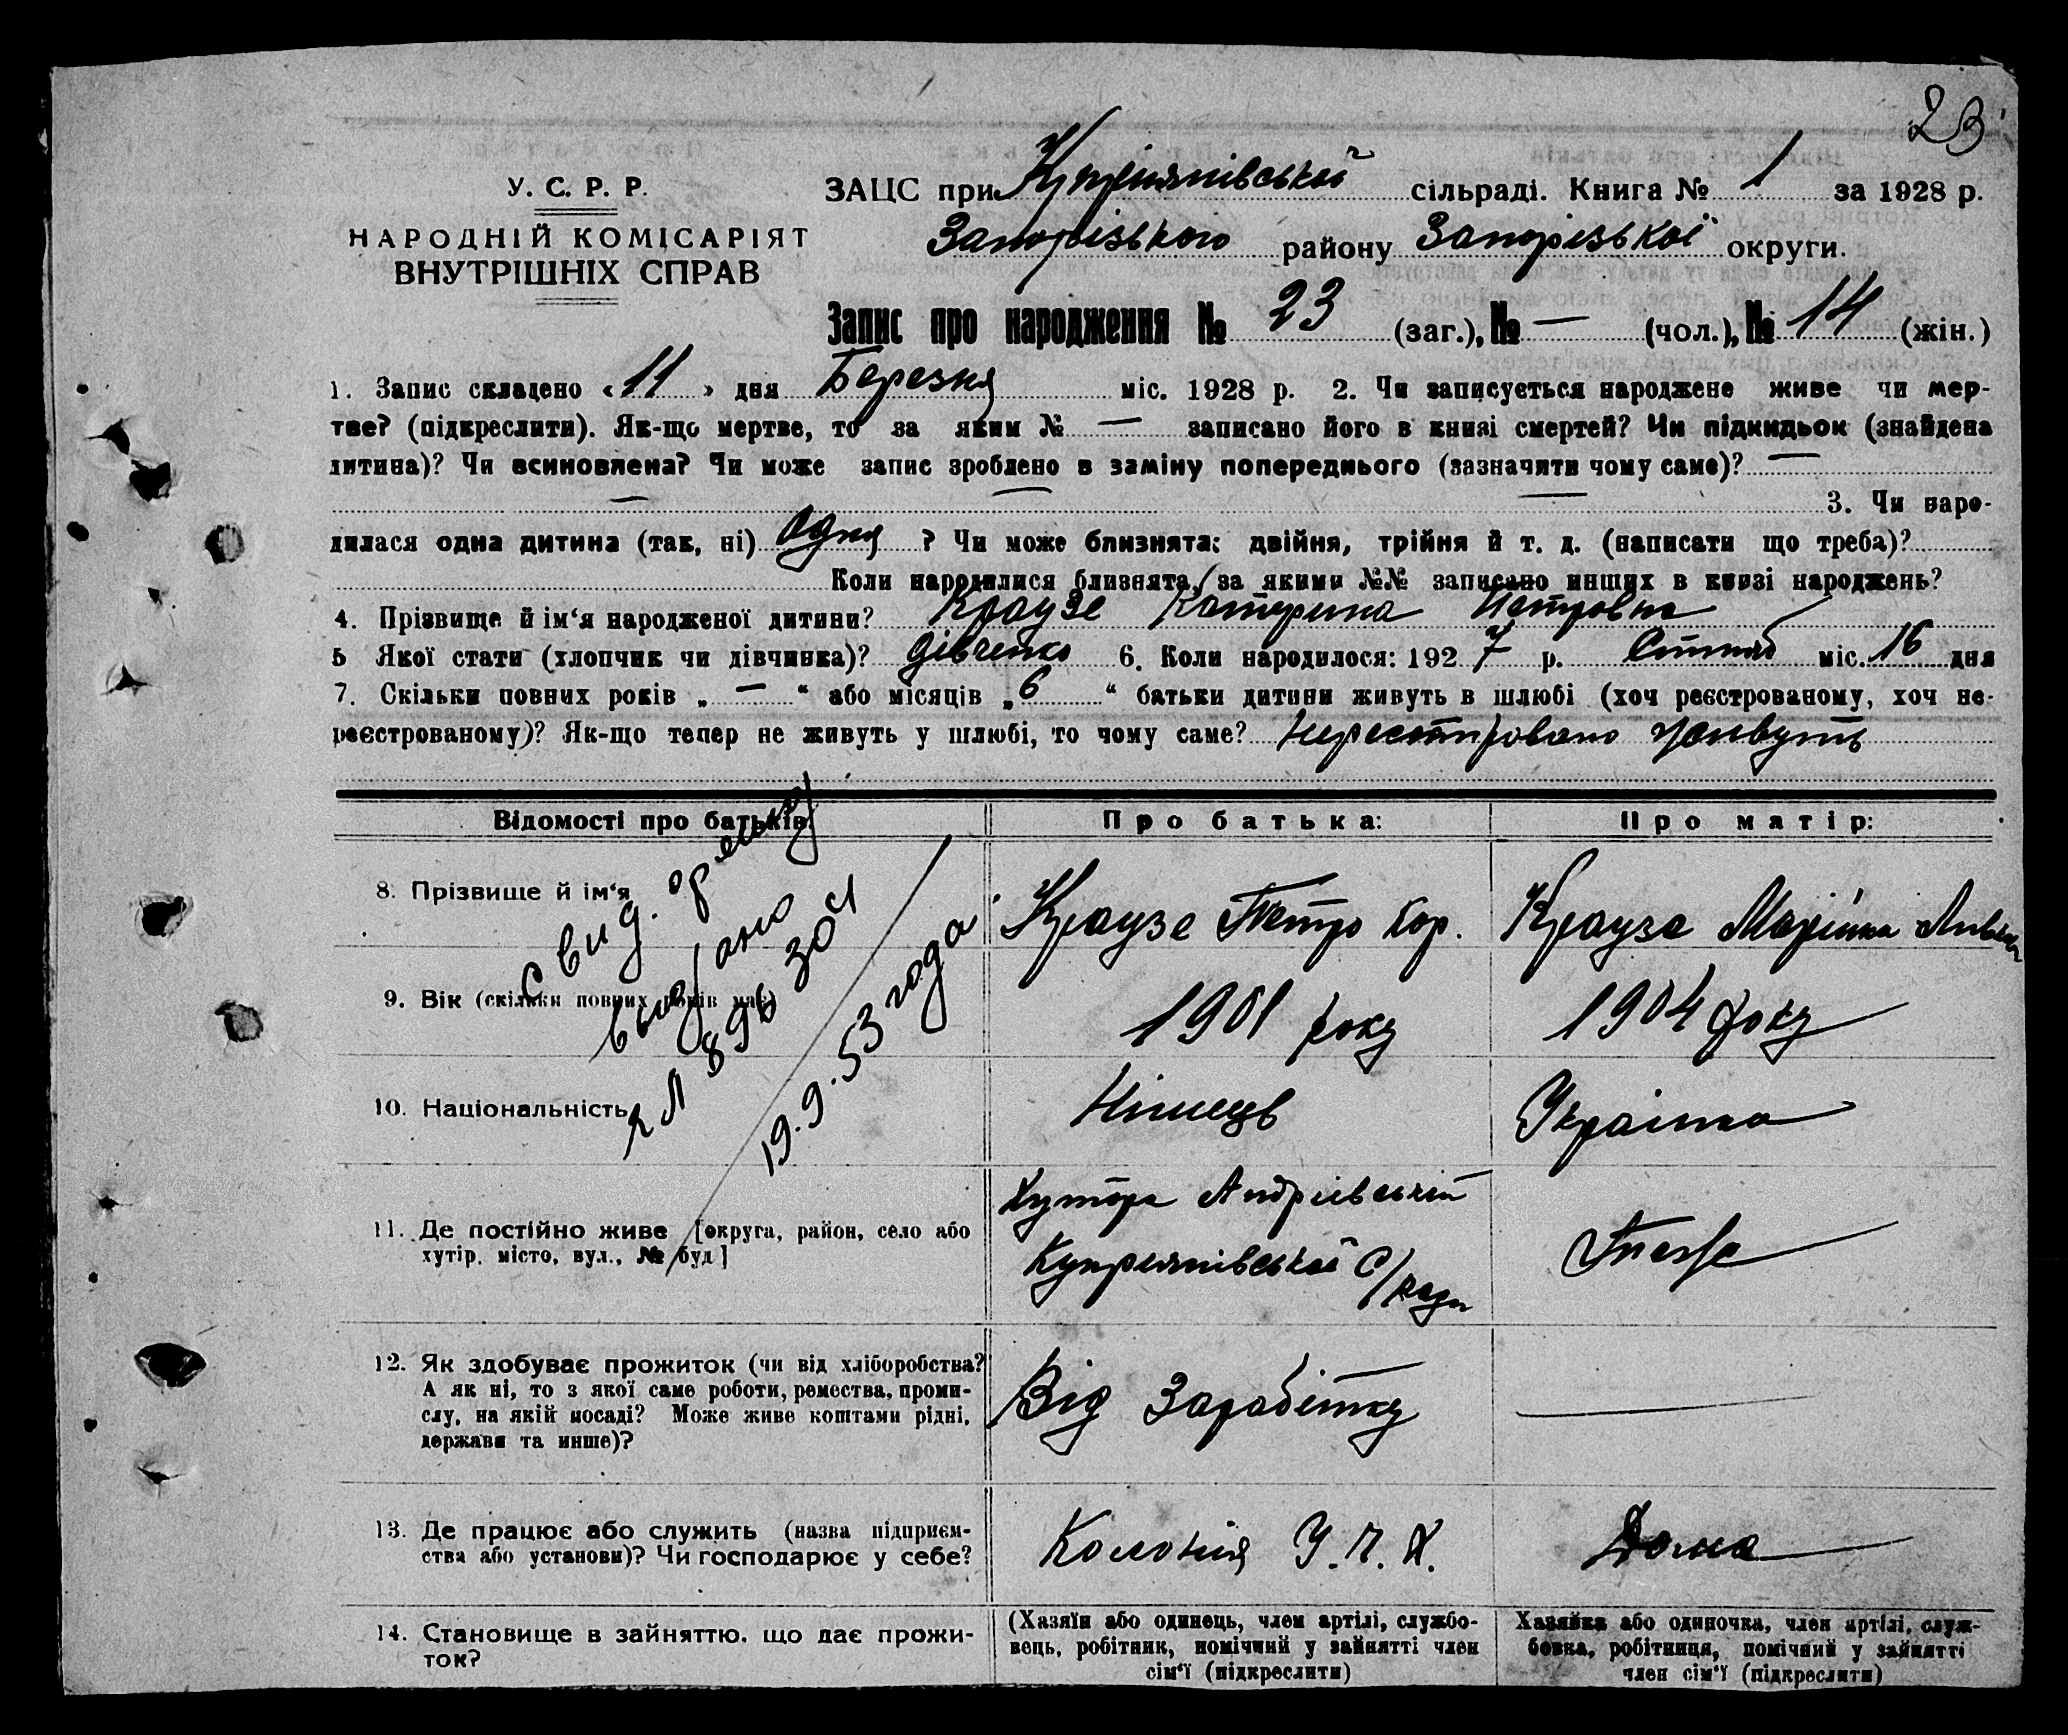 23
У. С. Р. Р.
НАРОДНІЙ КОМІСАРІЯТ
ВНУТРІШНІХ СПРАВ
ЗАЦС при Купріянівській сільраді. Книга № 1 за 1928 р.
Запорізького району Запорізької округи.
Запис про народження № 23 (заг.), № — (чол.), № 14 (жін.)
1. Запис складено «11» дня Березня міс. 1928 р. 2. Чи записується народжене живе чи мер-
тве? (підкреслити). Як-що мертве, то за яким № — записано його в книзі смертей? Чи підкидьок (знайдена
дитина)? Чи всиновлена? Чи може запис зроблено в заміну попереднього (зазначити чому саме)? —
— — — 3. Чи наро-
дилася одна дитина (так, ні) Одна ? Чи може близнята: двійня, трійня й т. д. (написати що треба)?
Коли народилися близнята, за якими №№ записано инших в книзі народжень?
4. Прізвище й ім‘я народженої дитини? Краузе Катерина Петровна
5 Якої стати (хлопчик чи дівчинка)? дівченко 6. Коли народилося: 1927 р. міс. 16 дня
7. Скільки повних років „ — “ або місяців „ 6 “ батьки дитини живуть в шлюбі (хоч реєстрованому, хоч не-
реєстрованому)? Як-що тепер не живуть у шлюбі, то чому саме? живуть
Відомості про батьків
Про батька:
Про матір:
8. Прізвище й ім‘я
Краузе Петро Кор.
Краузе
свид.
выдано
19.9.53 года
9. Вік (скільки повних років має)
1901 року
1904 року
10. Національність
Німець
Українка
11. Де постійно живе [округа, район, село або
хутір, місто, вул., № буд]
Хутора Андріівській
Купріянівській С/Ради
12. Як здобуває прожиток (чи від хліборобства?
А як ні, то з якої саме роботи, ремества, проми-
слу, на якій посаді? Може живе коштами рідні,
держави та инше)?
Від Заробітку
—
13. Де працює або служить (назва підприєм-
ства або установи)? Чи господарює у себе?
Колонія У.Ч.Х.
Дома
14. Становище в зайняттю, що дає прожи-
ток?
(Хазяїн або одинець, член артілі, службо-
вець, робітник, помічний у зайнятті член
сім‘ї (підкреслити)
Хазяйка або одиночка, член артілі, служ-
бовка, робітниця, помічний у зайнятті
член сім‘ї (підкреслити)